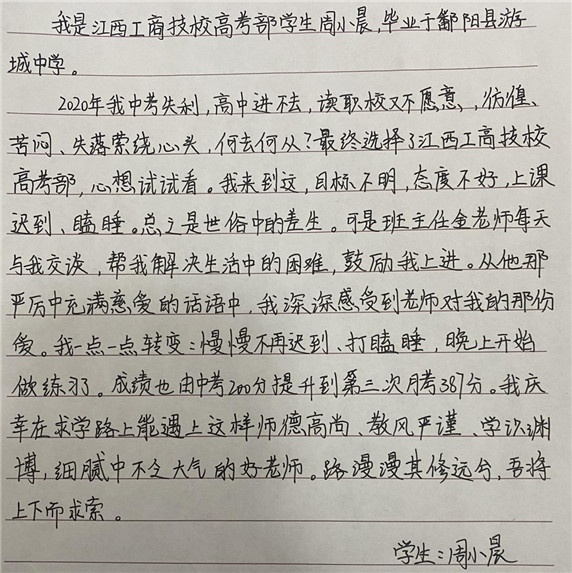 我是江西工商技校高考部学生周小晨,毕业于鄱阳县游
城中学。
2020年我中考失利,高中进不去,读职校又不愿意,彷徨、
苦闷、失落萦绕心头,何去何从?最终选择了江西工商技校
高考部,心想试试看。我来到这,目标不明,态度不好,上课
迟到、瞌睡。总之是世俗中的差生。可是班主任金老师每天
与我交谈,帮我解决生活中的困难,鼓励我上进。从他那
严厉中充满慈爱的话语中,我深深感受到老师对我的那份
爱。我一点一点转变:慢慢不再迟到、打瞌睡,晚上开始
做练习。成绩也由中考200分提升到第三次月考387分。我庆
幸在求学路上能遇上这样师德高尚、教风严谨、学识渊
博,细腻中不乏大气的好老师。路漫漫其修远兮,吾将
上下而求索。
学生:周小晨